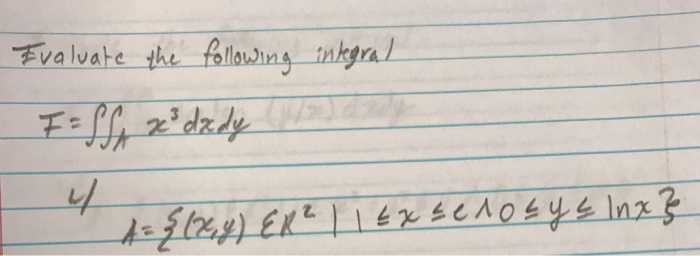 Evaluate the following integral
F = ∫∫_A x³ dx dy
w/
A = {(x,y) ∈ R² | 1 ≤ x ≤ e ∧ 0 ≤ y ≤ ln x}